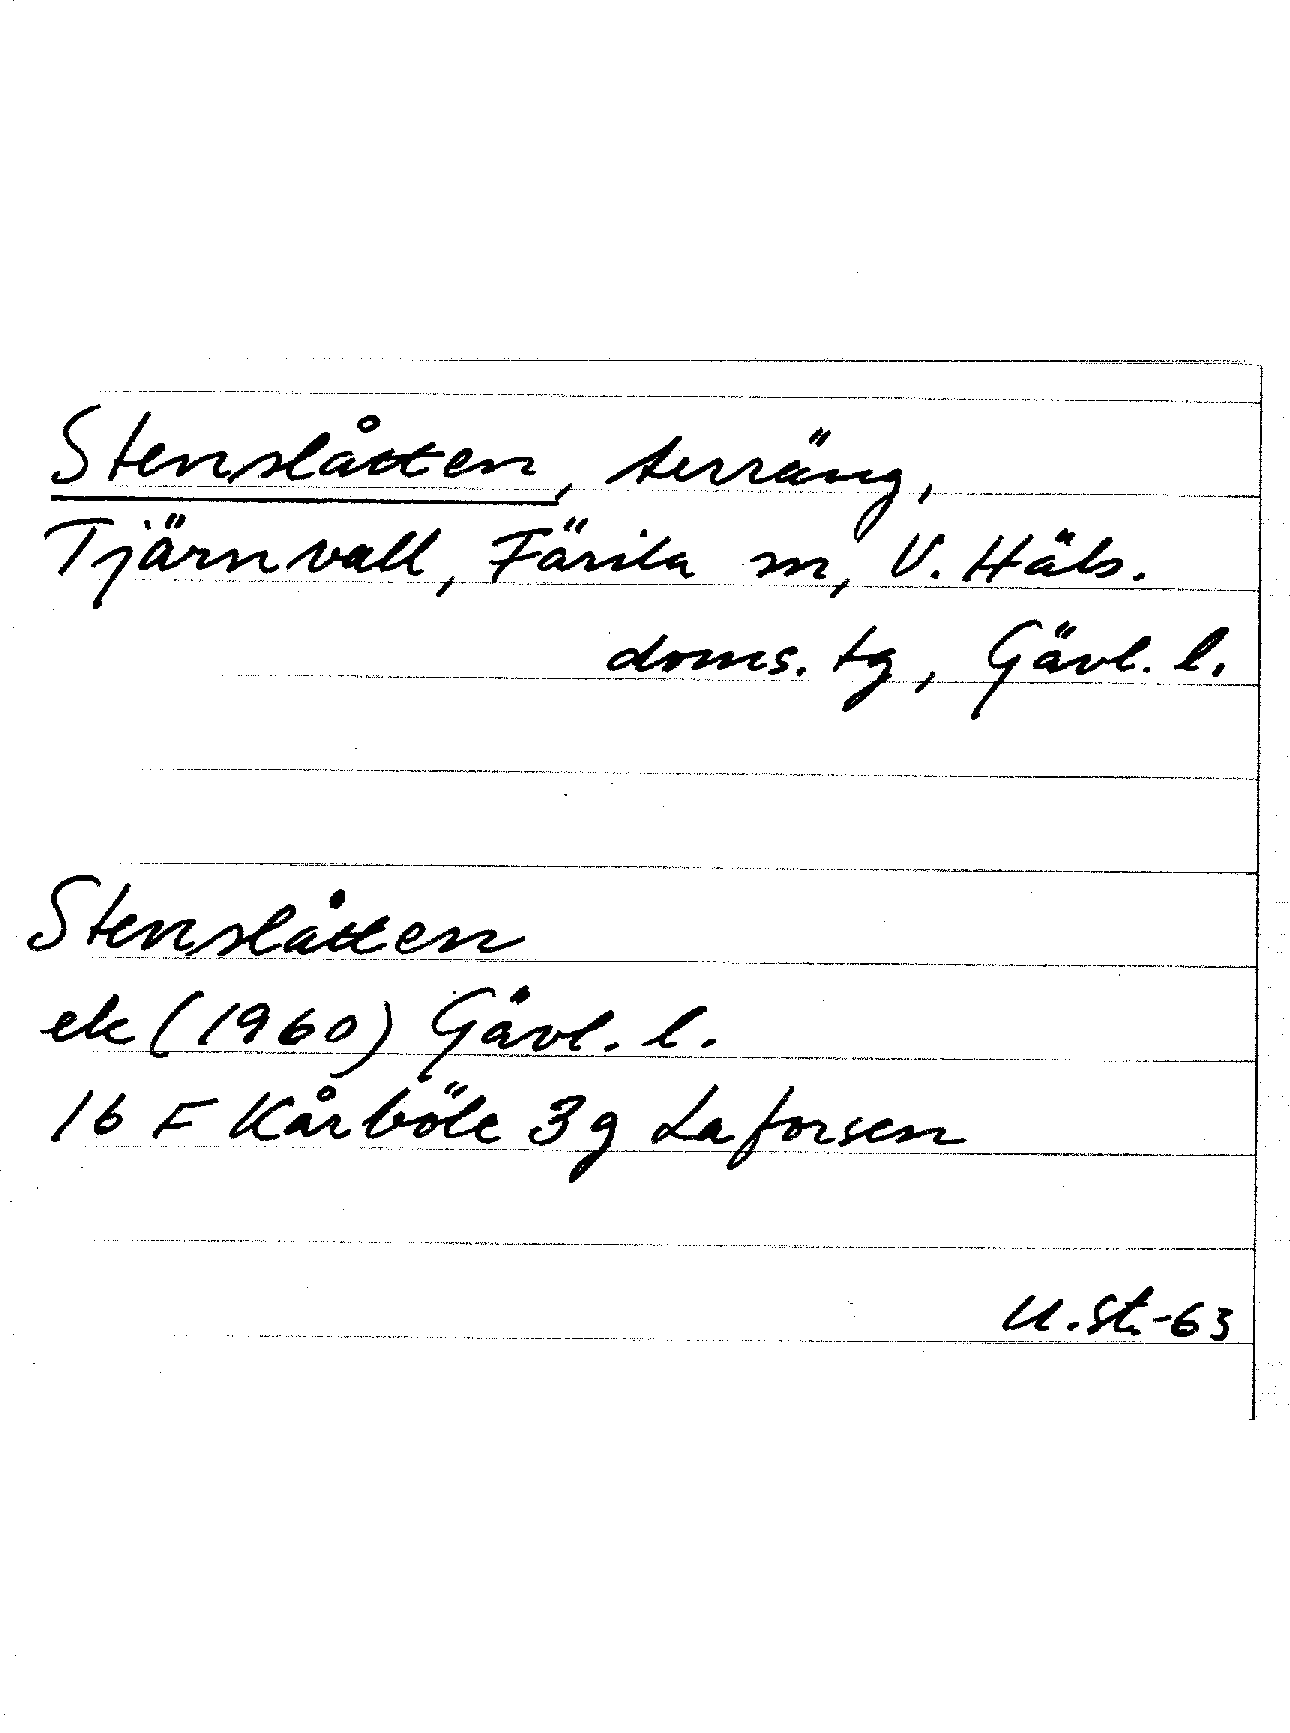 Stenslåtten, terräng,
Tjärnvall, Färila m, V. Häls.
doms. tg, Gävl. l.
Stenslåtten
ek (1960) Gävl. l.
16 F Kårböle 3g Laforsen
U.St.-63